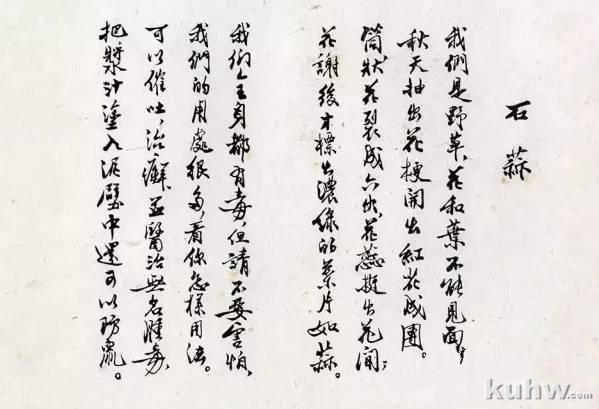 石蒜
我們是野草，花和葉不能見面，
秋天抽出花梗開出紅花成團。
筒狀花裂成六出，花蕊挺出花間；
花謝後才標出濃綠的葉片如蒜。
我們全身都有毒，但請不要害怕，
我們的用處很多，看你怎樣用法。
可以催吐，治癬，並醫治無名腫毒，
把漿汁塗入泥壁中還可以防鼠。
kuhw.com